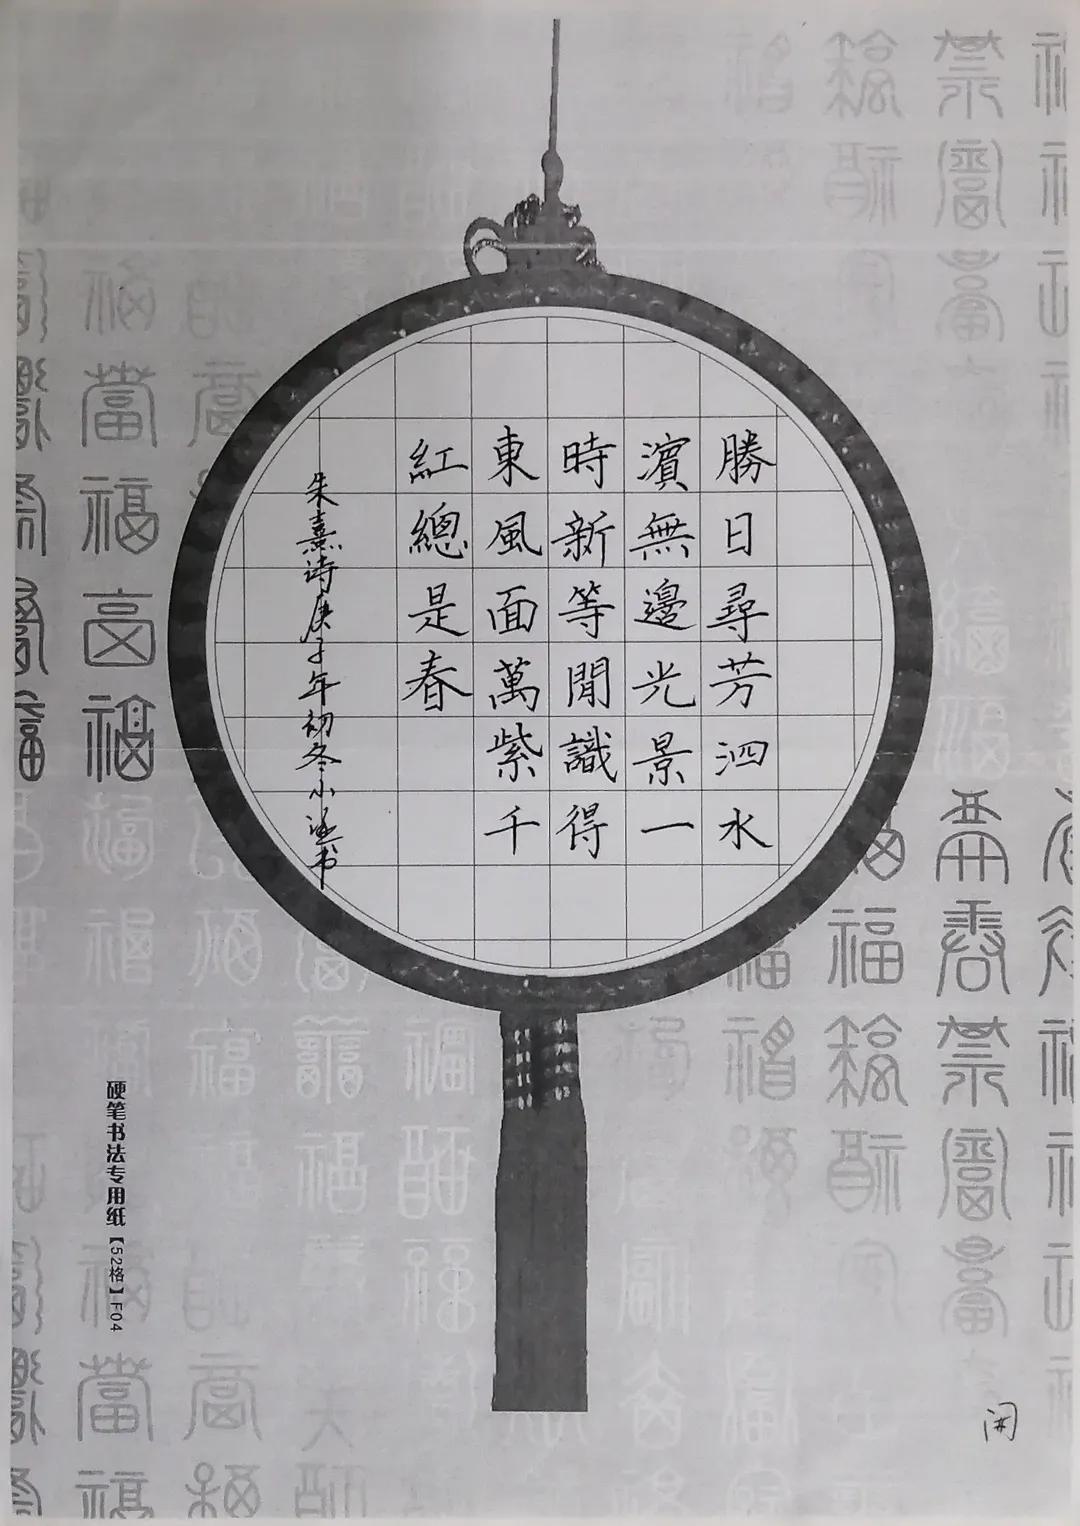 勝日尋芳泗水
濵無邊光景一
時新等閒識得
東風面萬紫千
紅總是春
朱熹诗庚子年初冬小涵书
硬笔书法专用纸【52格】F04